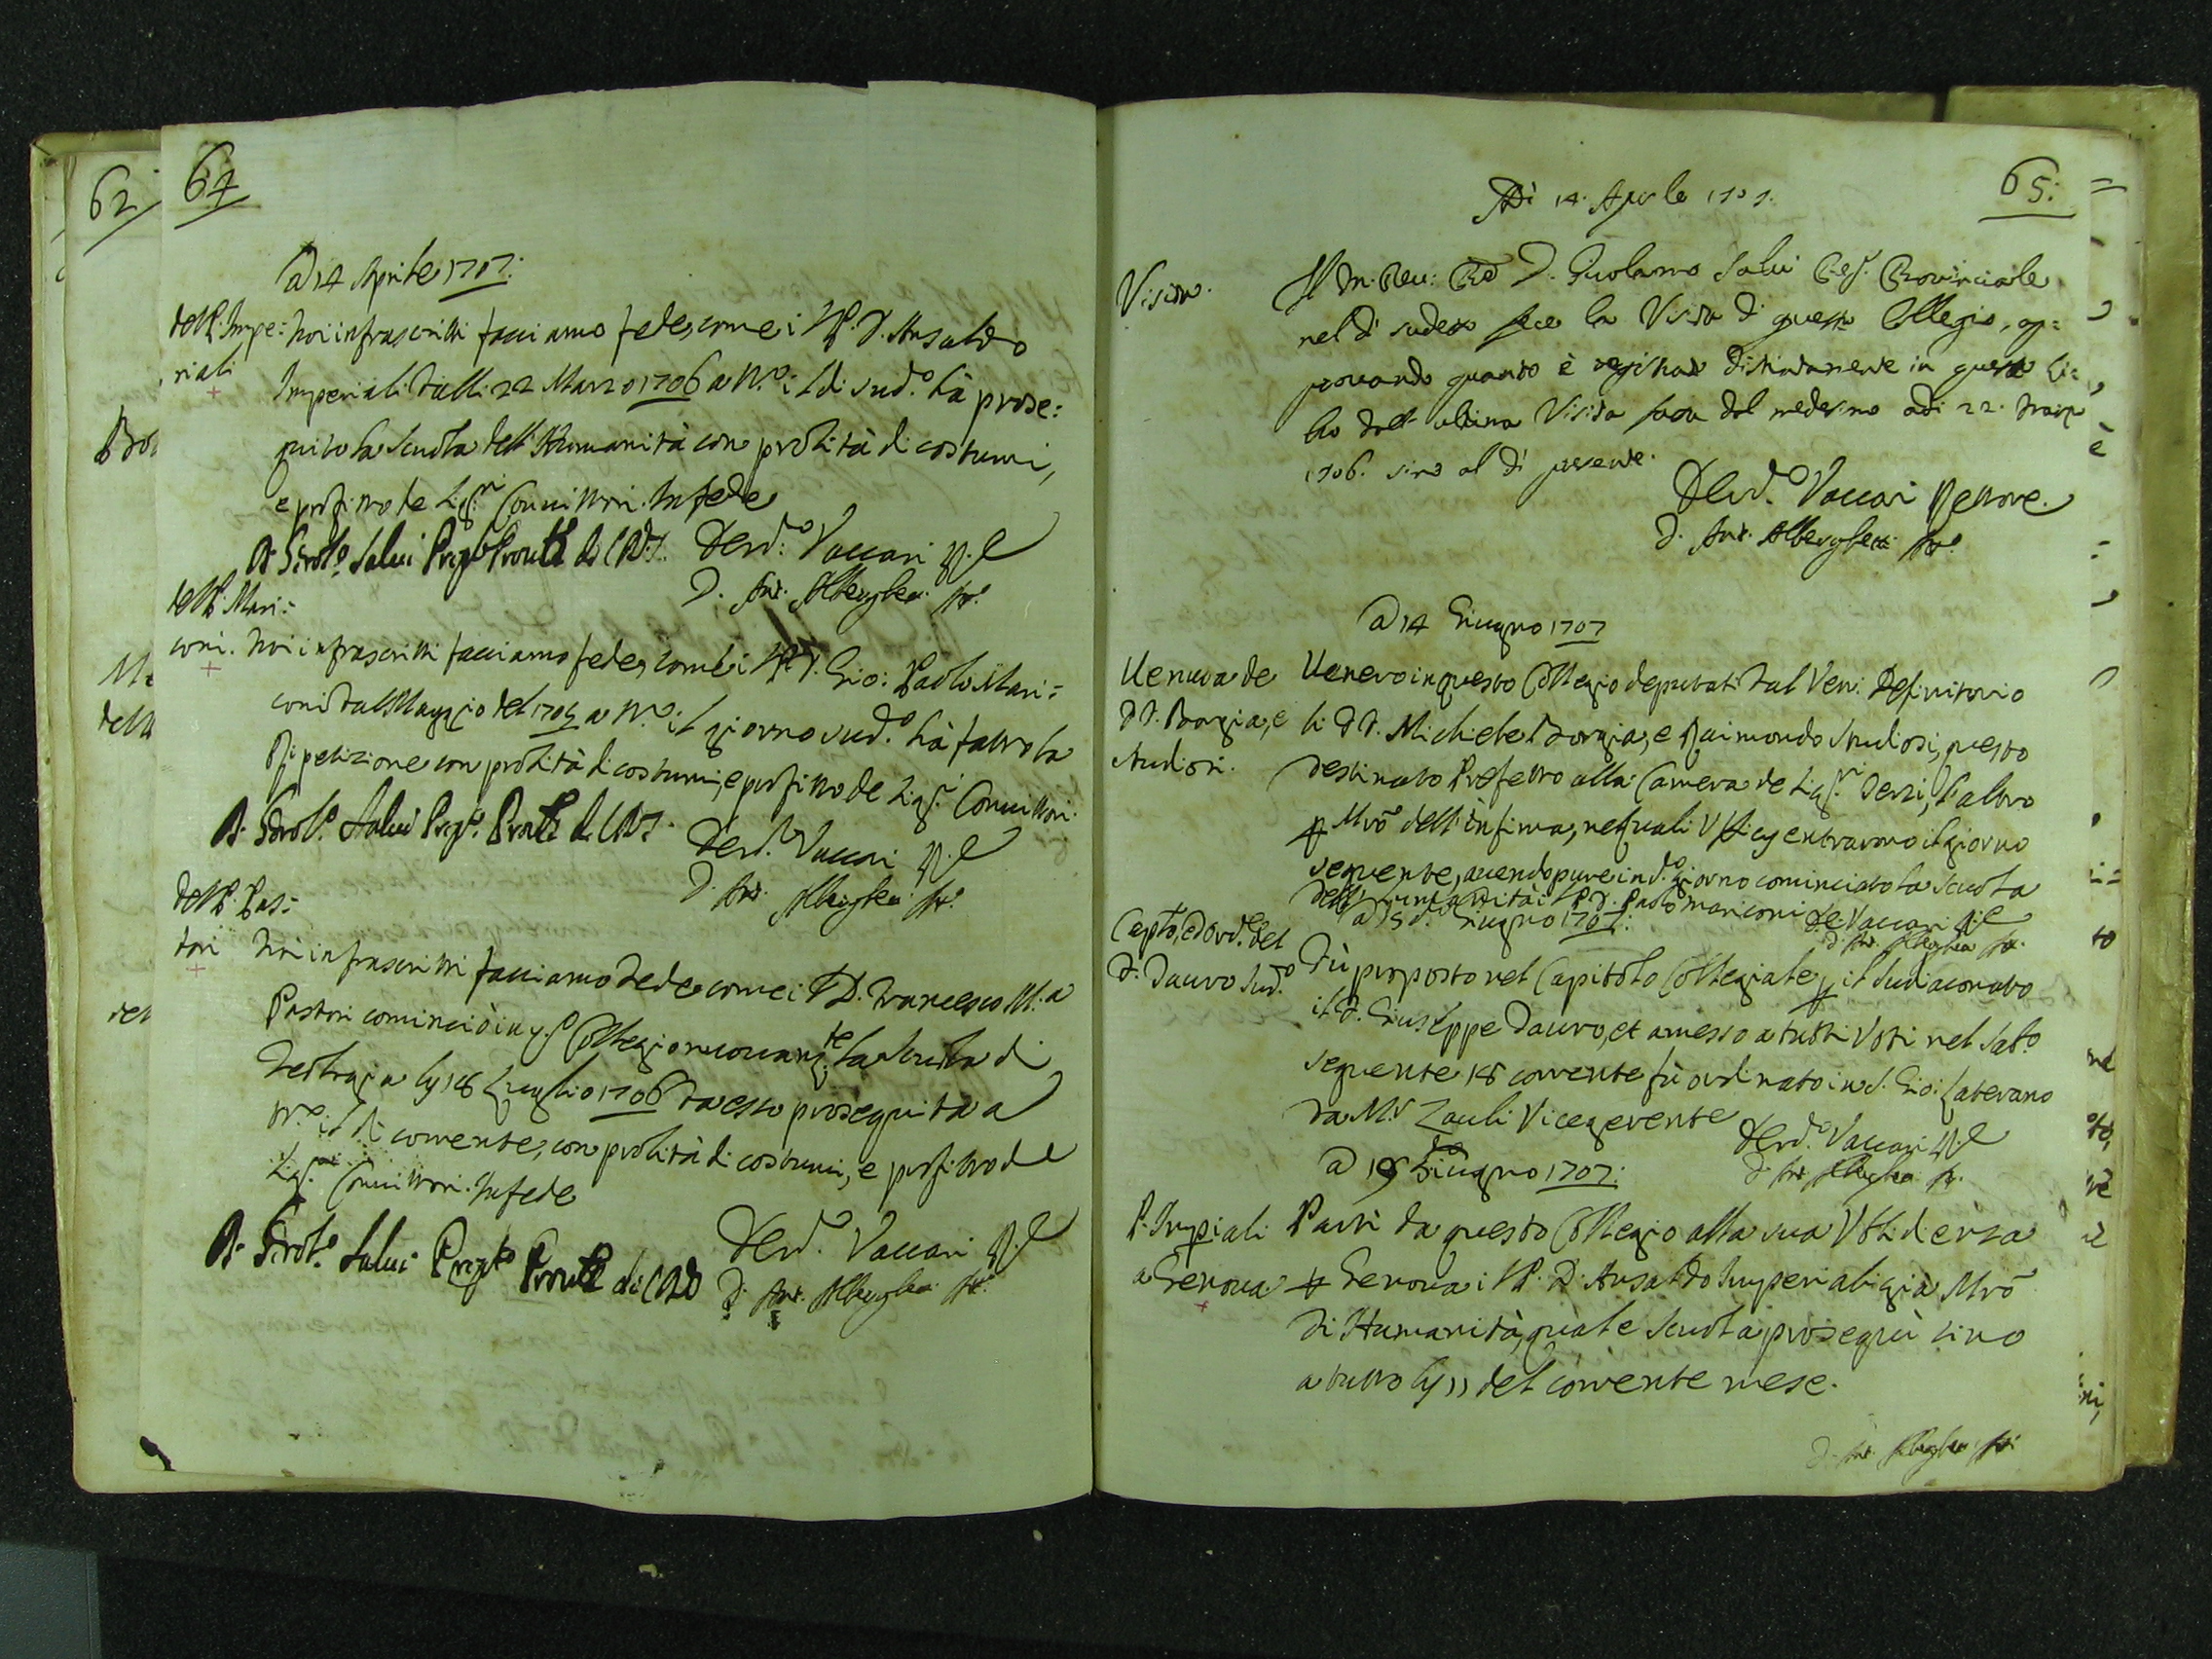 62
64
A 14 Aprile 1707:
del P. Impe:
riali
Noi infrascritti facciamo fede, come il P. D. Ansaldo
Imperiali dalli 22 Marzo 1706 a tt.º il dì sud.º hà prose:
guito la scuola dell'Humanità con probità di costumi,
e profitto de Sig.ri Convittori. In fede
D. Girol.º Salvi Prep.to Prov.le di CRS.
Ferd.º Vaccari R.e
D. Ant. Alberghetti
del P. Mari=
coni.
Noi infrascritti facciamo fede, come il P. D. Gio: Paolo Mari=
coni dal Maggio del 1705 a tt.º il giorno sud.º hà fatto la
Ripetizione con probità di costumi, e profitto de Sig.ri Convittori.
D. Girol.º Salvi Prep.to Prov.le di CRS.
Ferd. Vaccari R.e
D. Ant. Alberghetti
del P. Pas=
tori
Noi infrascritti facciamo Fede come il P. D. Francesco M.a
Pastori cominciò in q.sto Collegio nuovam.te la scuola di
Rettorica ly 18 Luglio 1706 da esso proseguita a
tt.º il dì corrente, con probità di costumi, e profitto de
Sig.ri Convittori. In fede
D. Girol.º Salvi Prep.to Prov.le di CRS
Ferd.º Vaccari R.e
D. Ant. Alberghetti
65:
Adì 14. Aprile 1707.
Visita.
Il M. Rev: P.re D. Girolamo Salvi Prep. Provinciale
nel dì sudetto fece la Visita di questo Collegio, ap=
provando quanto è registrato distintamente in questo Li=
bro dall'ultima Visita fatta dal medesimo adi 22. Marzo
1706. sino al dì presente.
Ferd.º Vaccari Rettore.
D. Ant. Alberghetti
A 14 Giugno 1707
Venuta de
DD. Borgia, e
Studiosi.
Venero in questo Collegio deputati dal Ven: Definitorio
li DD. Michele Borgia, e Raimondo Studiosi, questo
destinato Prefetto alla Camera de Sig.ri Terzi, l'altro
Mrõ dell'infima, ne quali Ufficij entrarono il giorno
seguente, avendo pure in d.º giorno cominciato la scuola
dell'Humanità il P. D. Paolo Mariconi
Fe. Vaccari R.e
D. Ant. Alberghetti
A 15 d. Giugno 1707:
Cap.to, ed ord.e del
D. Dauro Sud.º
Fù proposto nel Capitolo Collegiale il sudiaconato
il D. Giuseppe Dauro, et amesso a tutti Voti nel Sab.º
seguente 18 corrente fù ordinato in S. Gio: Laterano
da M.r Zauli Vicegerente
Ferd.º Vaccari R.e
D. Ant. Alberghetti
A 19 Giugno 1707:
P. Imp.iali
a Genova
Partì da questo Collegio alla sua Ubbidienza
Genova il P. D. Ansaldo Imperiali già Mrõ
di Humanità, quale scuola proseguì sino
a tutto ly 11 del corrente mese.
D. Ant. Alberghetti